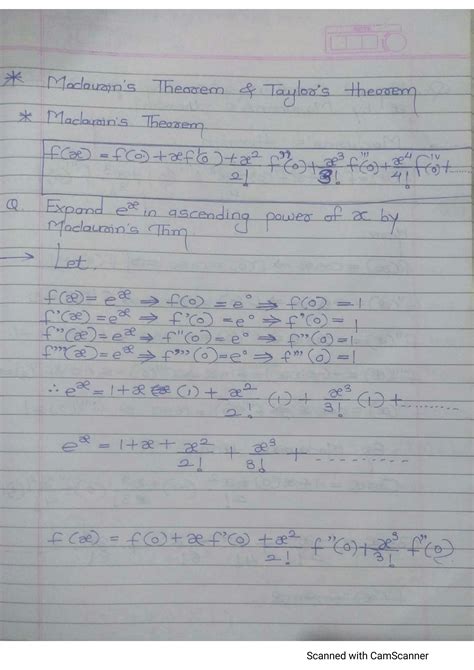 * Maclaurin's Theorem & Taylor's theorem
* Maclaurin's Theorem
f(x) = f(0) + xf'(0) + x²/2! f''(0) + x³/3! f'''(0) + x⁴/4! f^iv(0) + ....
Q Expand eˣ in ascending power of x by
Maclaurin's Thm
→ Let
f(x) = eˣ ⇒ f(0) = e° ⇒ f(0) = 1
f'(x) = eˣ ⇒ f'(0) = e° ⇒ f'(0) = 1
f''(x) = eˣ ⇒ f''(0) = e° ⇒ f''(0) = 1
f'''(x) = eˣ ⇒ f'''(0) = e° ⇒ f'''(0) = 1
∴ eˣ = 1 + x (1) + x²/2! (1) + x³/3! (1) + ..........
eˣ = 1 + x + x²/2! + x³/3! + ..............
f(x) = f(0) + x f'(0) + x²/2! f''(0) + x³/3! f'''(0)
Scanned with CamScanner